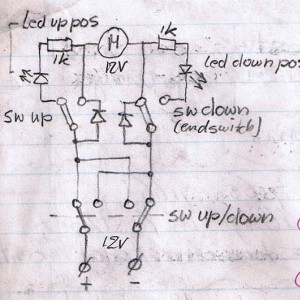 Led up pos
1k
M
12V
1k
led down pos
sw up
sw down
(endswitch)
sw up/down
12V
+
-